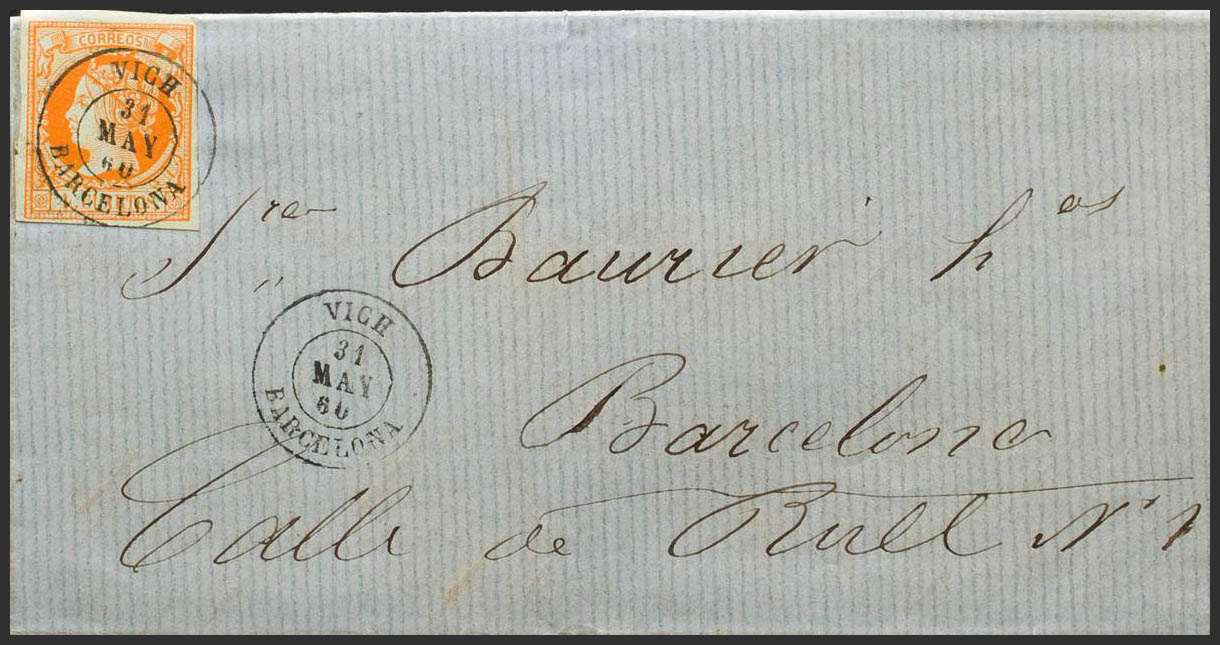 CORREOS
VICH
31
MAY
60
BARCELONA
Sres Baurier hos
VICH
31
MAY
60
BARCELONA
Barcelona
Calle de Rull No 1